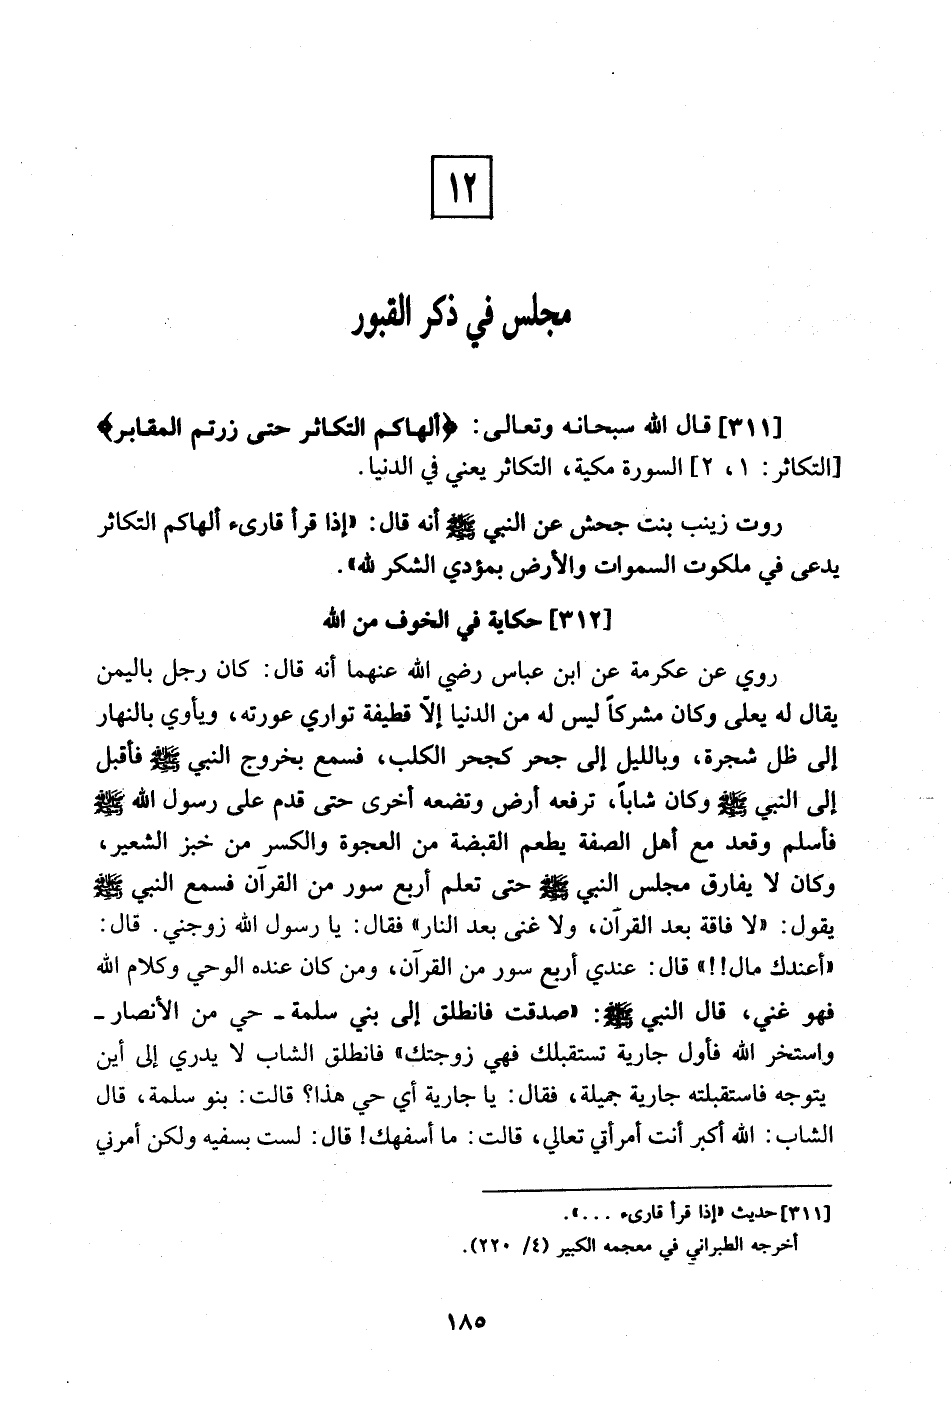 ١٢
مجلس في ذكر القبور
[٣١١] قال الله سبحانه وتعالى: ﴿ألهاكم التكاثر حتى زرتم المقابر﴾
[التكاثر: ١، ٢] السورة مكية، التكاثر يعني في الدنيا.
روت زينب بنت جحش عن النبي ﷺ أنه قال: «إذا قرأ قارىء ألهاكم التكاثر
يدعى في ملكوت السموات والأرض بمؤدي الشكر لله».
[٣١٢] حكاية في الخوف من الله
روي عن عكرمة عن ابن عباس رضي الله عنهما أنه قال: كان رجل باليمن
يقال له يعلى وكان مشركاً ليس له من الدنيا إلاّ قطيفة تواري عورته، ويأوي بالنهار
إلى ظل شجرة، وبالليل إلى جحر كجحر الكلب، فسمع بخروج النبي ﷺ فأقبل
إلى النبي ﷺ وكان شاباً، ترفعه أرض وتضعه أخرى حتى قدم على رسول الله ﷺ
فأسلم وقعد مع أهل الصفة يطعم القبضة من العجوة والكسر من خبز الشعير،
وكان لا يفارق مجلس النبي ﷺ حتى تعلم أربع سور من القرآن فسمع النبي ﷺ
يقول: «لا فاقة بعد القرآن، ولا غنى بعد النار» فقال: يا رسول الله زوجني. قال:
«أعندك مال!!» قال: عندي أربع سور من القرآن، ومن كان عنده الوحي وكلام الله
فهو غني، قال النبي ﷺ: «صدقت فانطلق إلى بني سلمة ـ حي من الأنصار ـ
واستخر الله فأول جارية تستقبلك فهي زوجتك» فانطلق الشاب لا يدري إلى أين
يتوجه فاستقبلته جارية جميلة، فقال: يا جارية أي حي هذا؟ قالت: بنو سلمة، قال
الشاب: الله أكبر أنت أمرأتي تعالي، قالت: ما أسفهك! قال: لست بسفيه ولكن أمرني
[٣١١] حديث «إذا قرأ قارىء ...».
أخرجه الطبراني في معجمه الكبير (٤/ ٢٢٠).
١٨٥